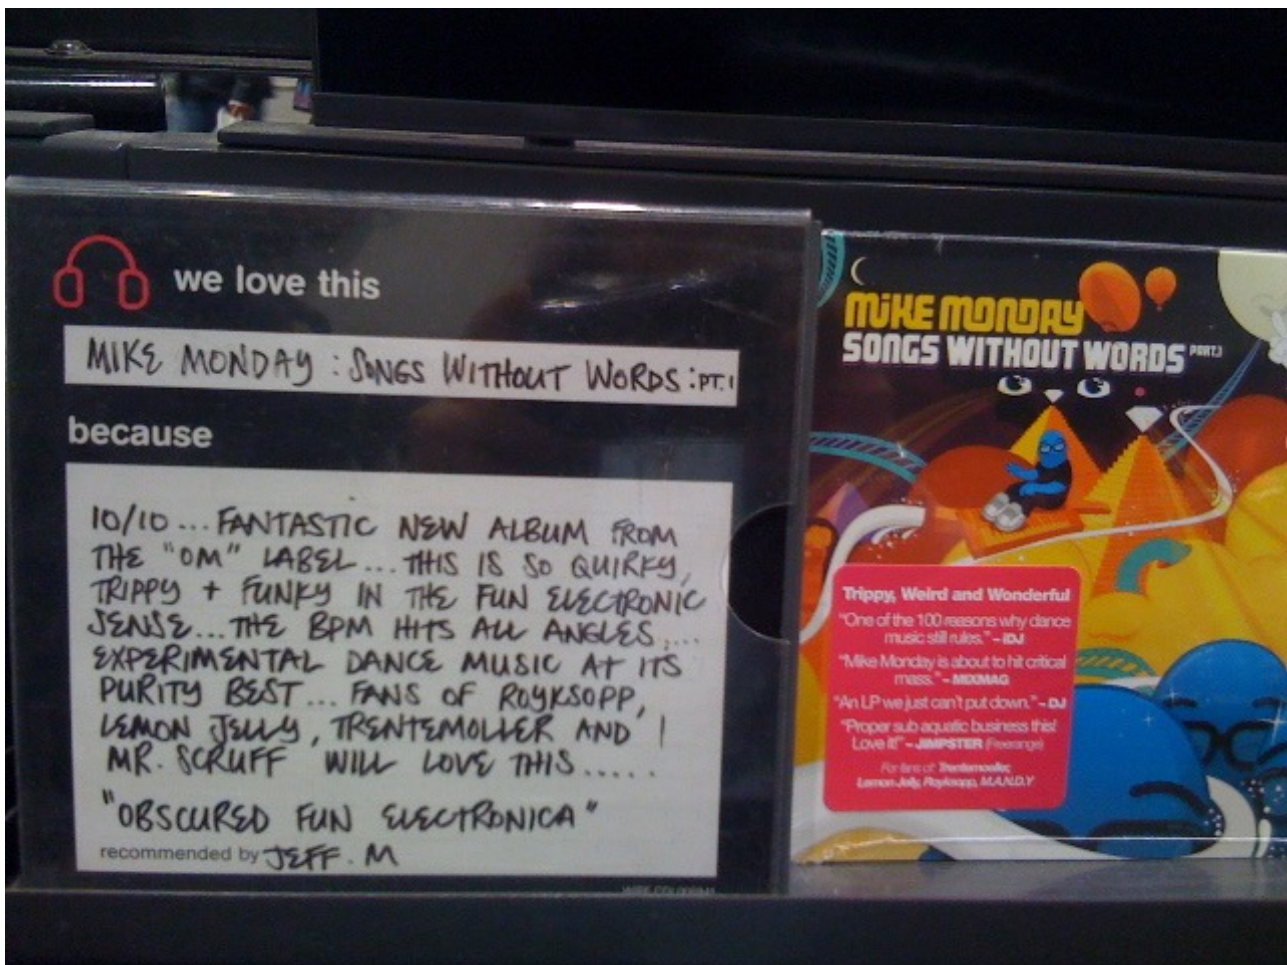 we love this
MIKE MONDAY : SONGS WITHOUT WORDS : PT. 1
because
10/10 ... FANTASTIC NEW ALBUM FROM
THE "OM" LABEL ... THIS IS SO QUIRKY,
TRIPPY + FUNKY IN THE FUN ELECTRONIC
SENSE ... THE BPM HITS ALL ANGLES ....
EXPERIMENTAL DANCE MUSIC AT ITS
PURITY BEST ... FANS OF ROYKSOPP,
LEMON JELLY, TRENTEMOLLER AND
MR. SCRUFF WILL LOVE THIS .....
"OBSCURED FUN ELECTRONICA"
recommended by JEFF. M
MIKE MONDAY
SONGS WITHOUT WORDS PART.1
Trippy, Weird and Wonderful
"One of the 100 reasons why dance
music still rules." – iDJ
"Mike Monday is about to hit critical
mass." – MIXMAG
"An LP we just can't put down." – DJ
"Proper sub aquatic business this!
Love it!" – JIMPSTER (Freerange)
For fans of: Trentemoeller,
Lemon Jelly, Royksopp, M.A.N.D.Y